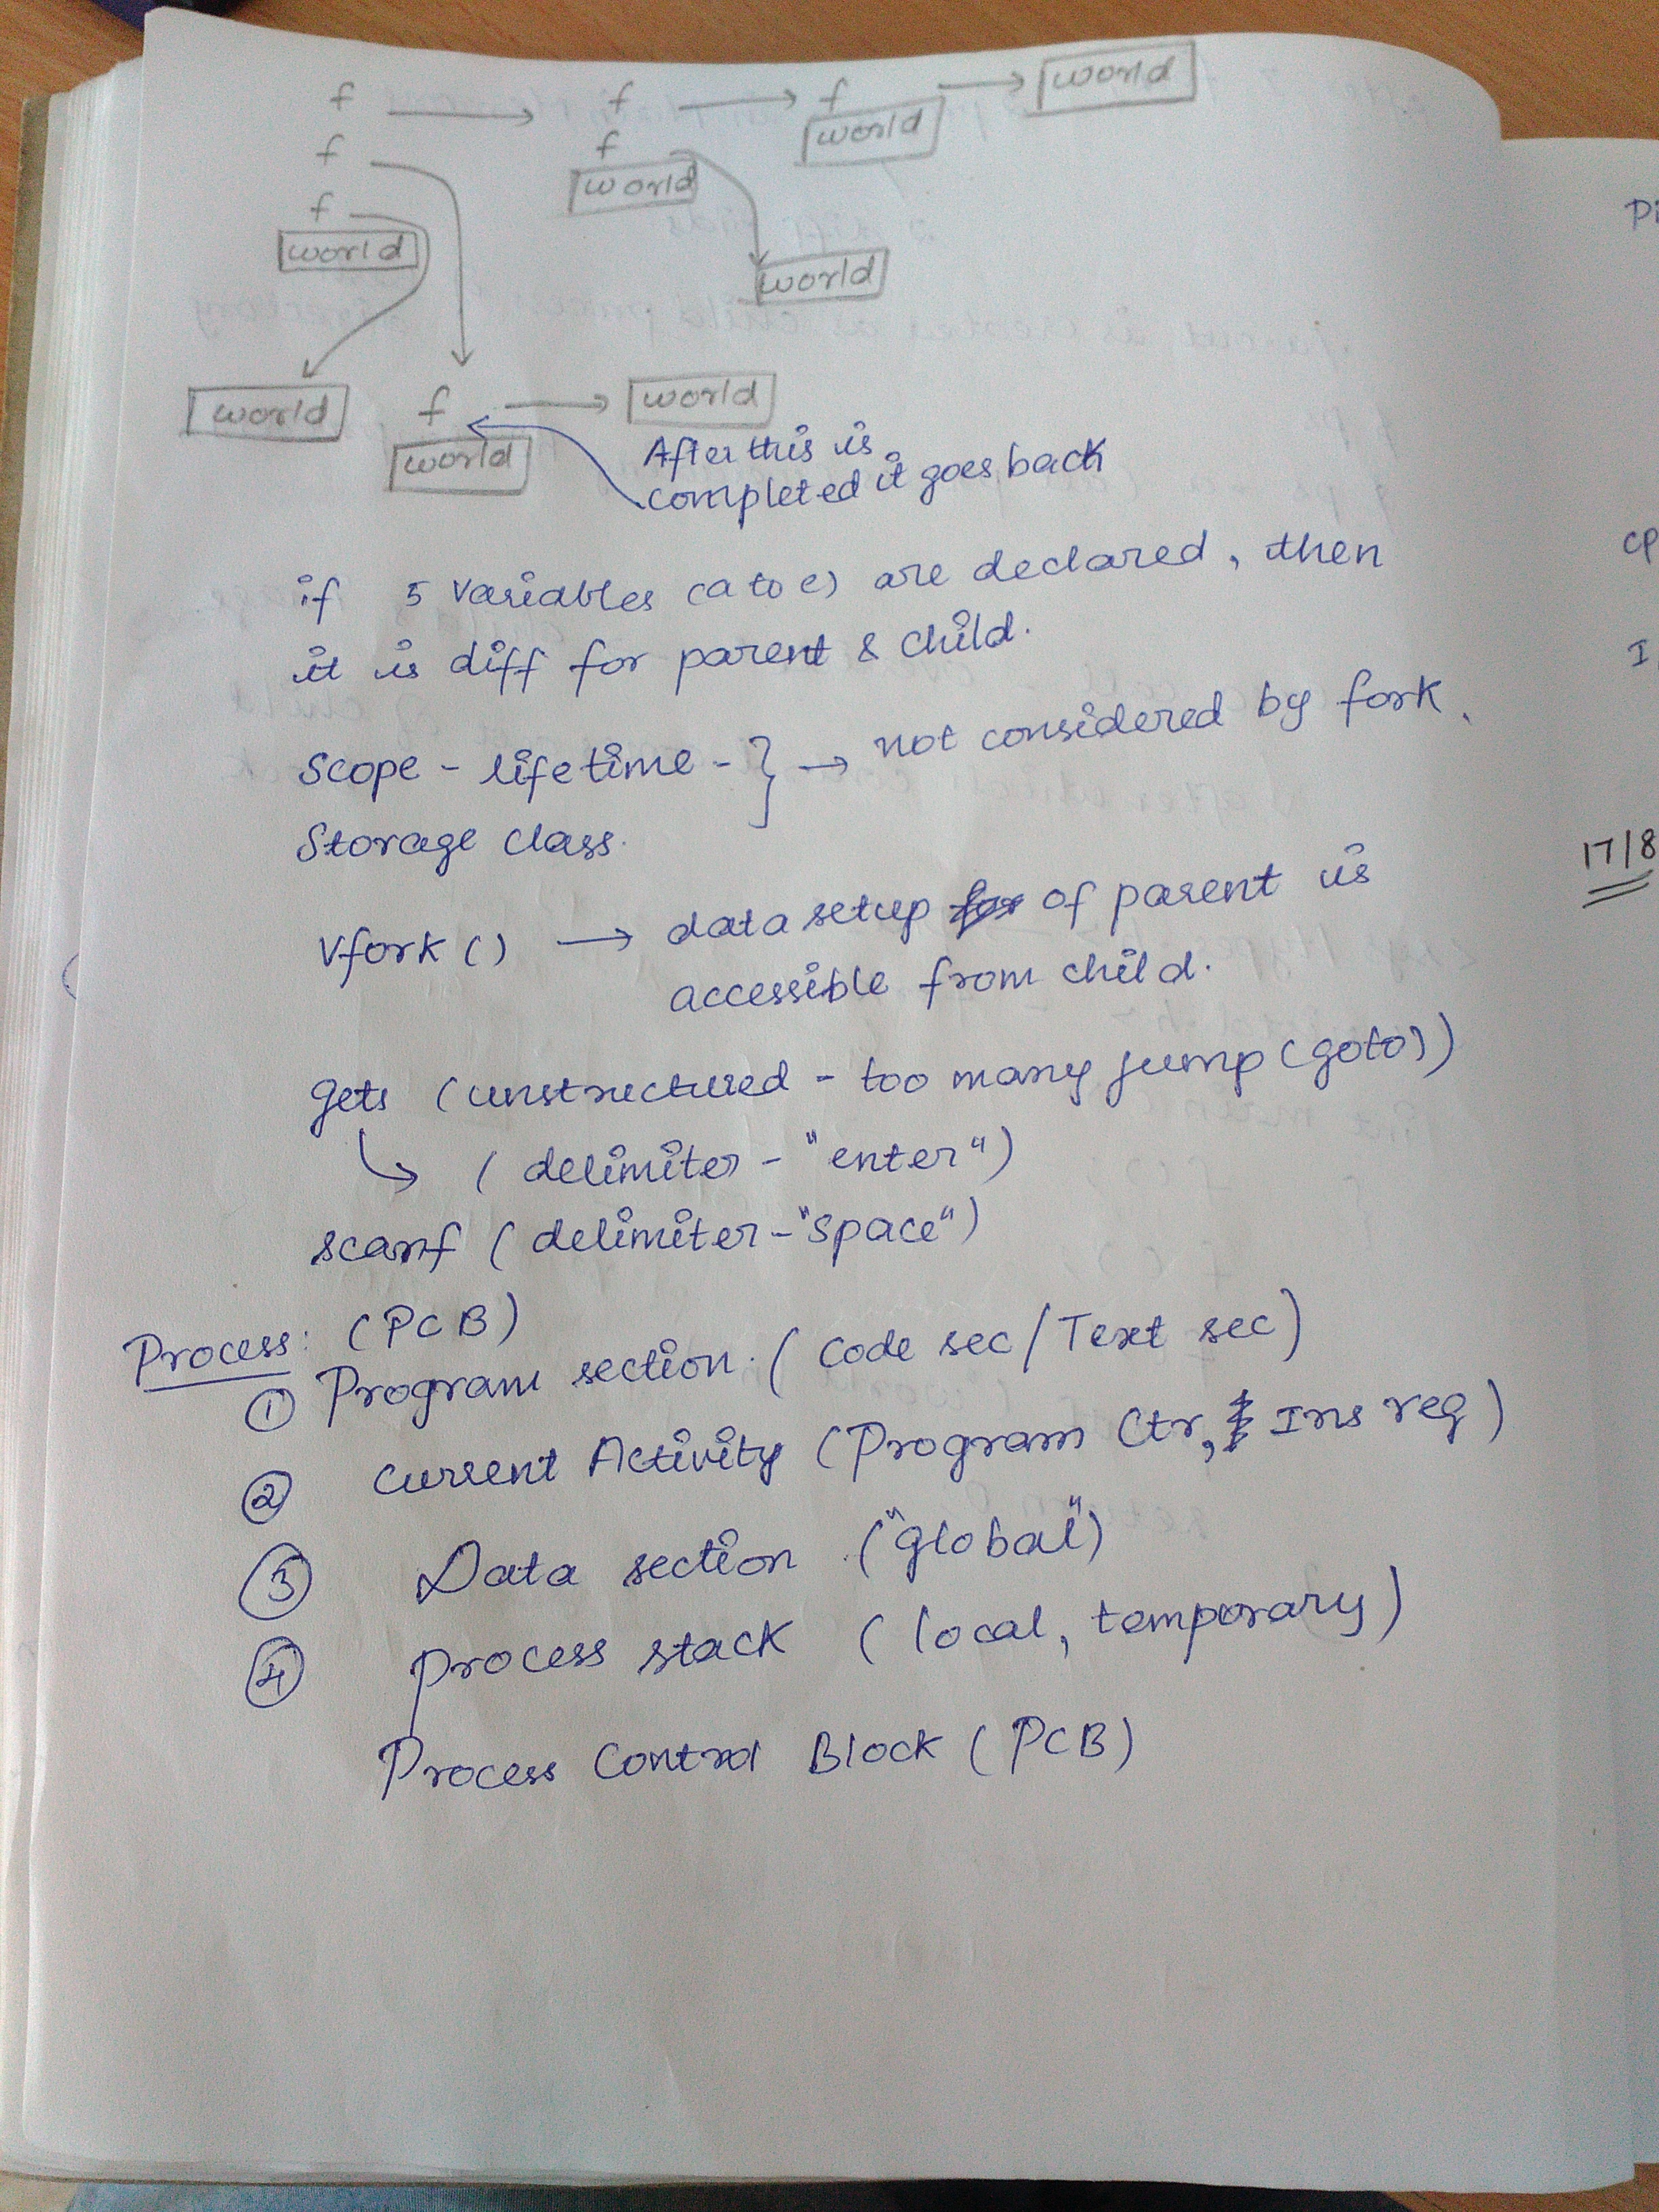 f → f → f → world
f f world
f world
world world
world f → world
world After this is
completed it goes back
if 5 variables (a to e) are declared, then
it is diff for parent & child.
Scope - lifetime - } → not considered by fork.
Storage class.
Vfork () → data setup for of parent is
accessible from child.
gets (unstructured - too many jump (goto))
↳ (delimiter - "enter")
scanf (delimiter - "space")
Process: (PCB)
① Program section. (Code sec / Text sec)
② Current Activity (Program Ctr, Ins reg)
③ Data section ("global")
④ Process stack (local, temporary)
Process Control Block (PCB)
17/8